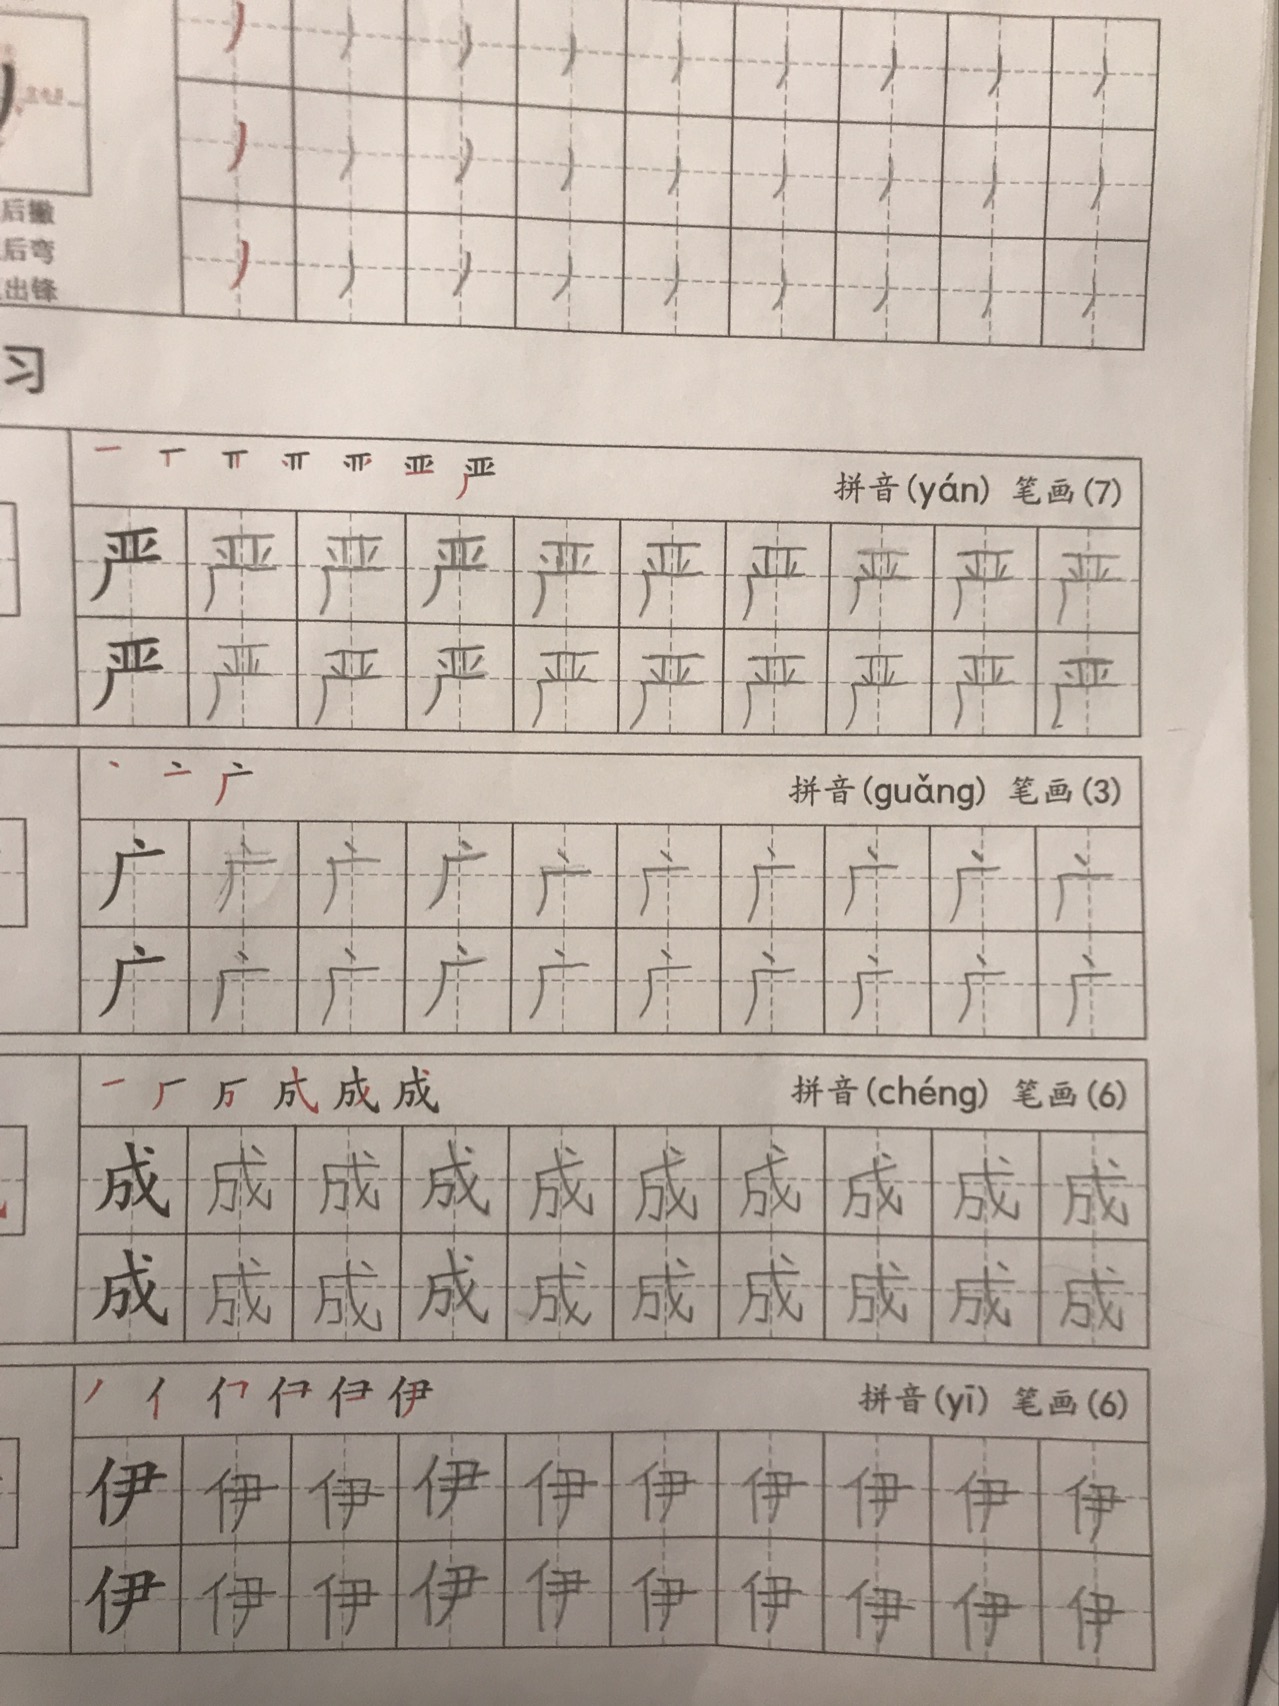 后撇
后弯
出锋
习
拼音(yán) 笔画(7)
严 严 严 严 严 严 严 严 严 严
严 严 严 严 严 严 严 严 严 严
拼音(guǎng) 笔画(3)
广 广 广 广 广 广 广 广 广 广
广 广 广 广 广 广 广 广 广 广
成 成 拼音(chéng) 笔画(6)
成 成 成 成 成 成 成 成 成 成
成 成 成 成 成 成 成 成 成 成
伊 拼音(yī) 笔画(6)
伊 伊 伊 伊 伊 伊 伊 伊 伊 伊
伊 伊 伊 伊 伊 伊 伊 伊 伊 伊